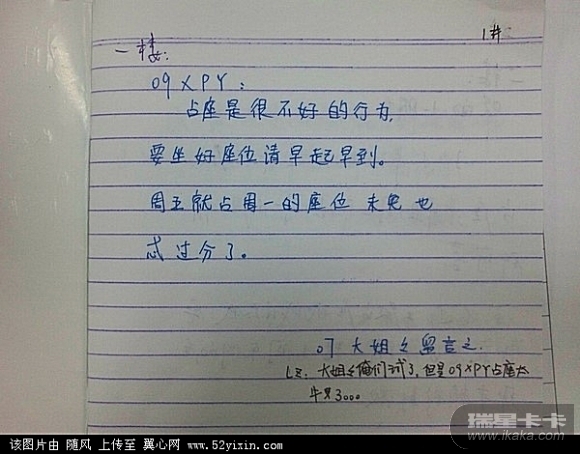 1#
一楼:
09XPY:
占座是很不好的行为,
要坐好座位请早起早到。
周五就占周一的座位 未免也
忒过分了。
07大姐之留言之.
LZ: 大姐之俺们讨了,但是09XPY占座太
牛只了。。。
瑞星卡卡
www.ikaka.com
该图片由 随风 上传至 翼心网 www.52yixin.com